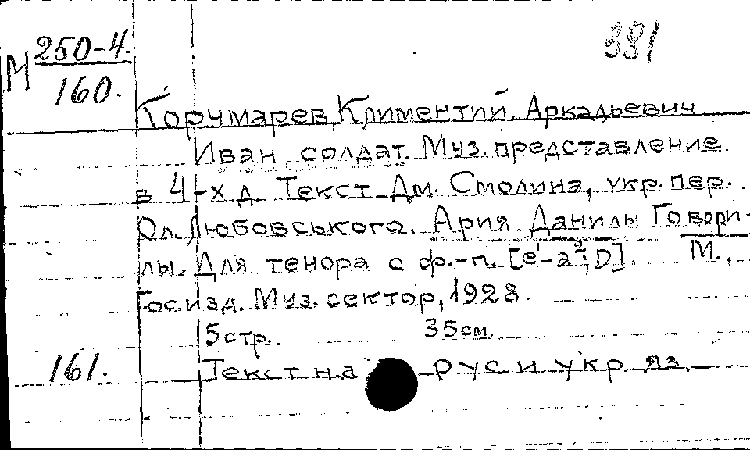 М 250-4. 381
160.
Корчмарев, Климентий Аркадьевич
Иван солдат. Муз. представление
в 4-х д. Текст Дм. Смолина, укр. пер.
Ол. Любовського. Ария Данилы Говори-
лы. Для тенора с ф.-п. [e¹-a²; D]. М.,
Госизд. Муз. сектор, 1928.
5 стр. 35 см.
161. Текст на рус и укр яз.